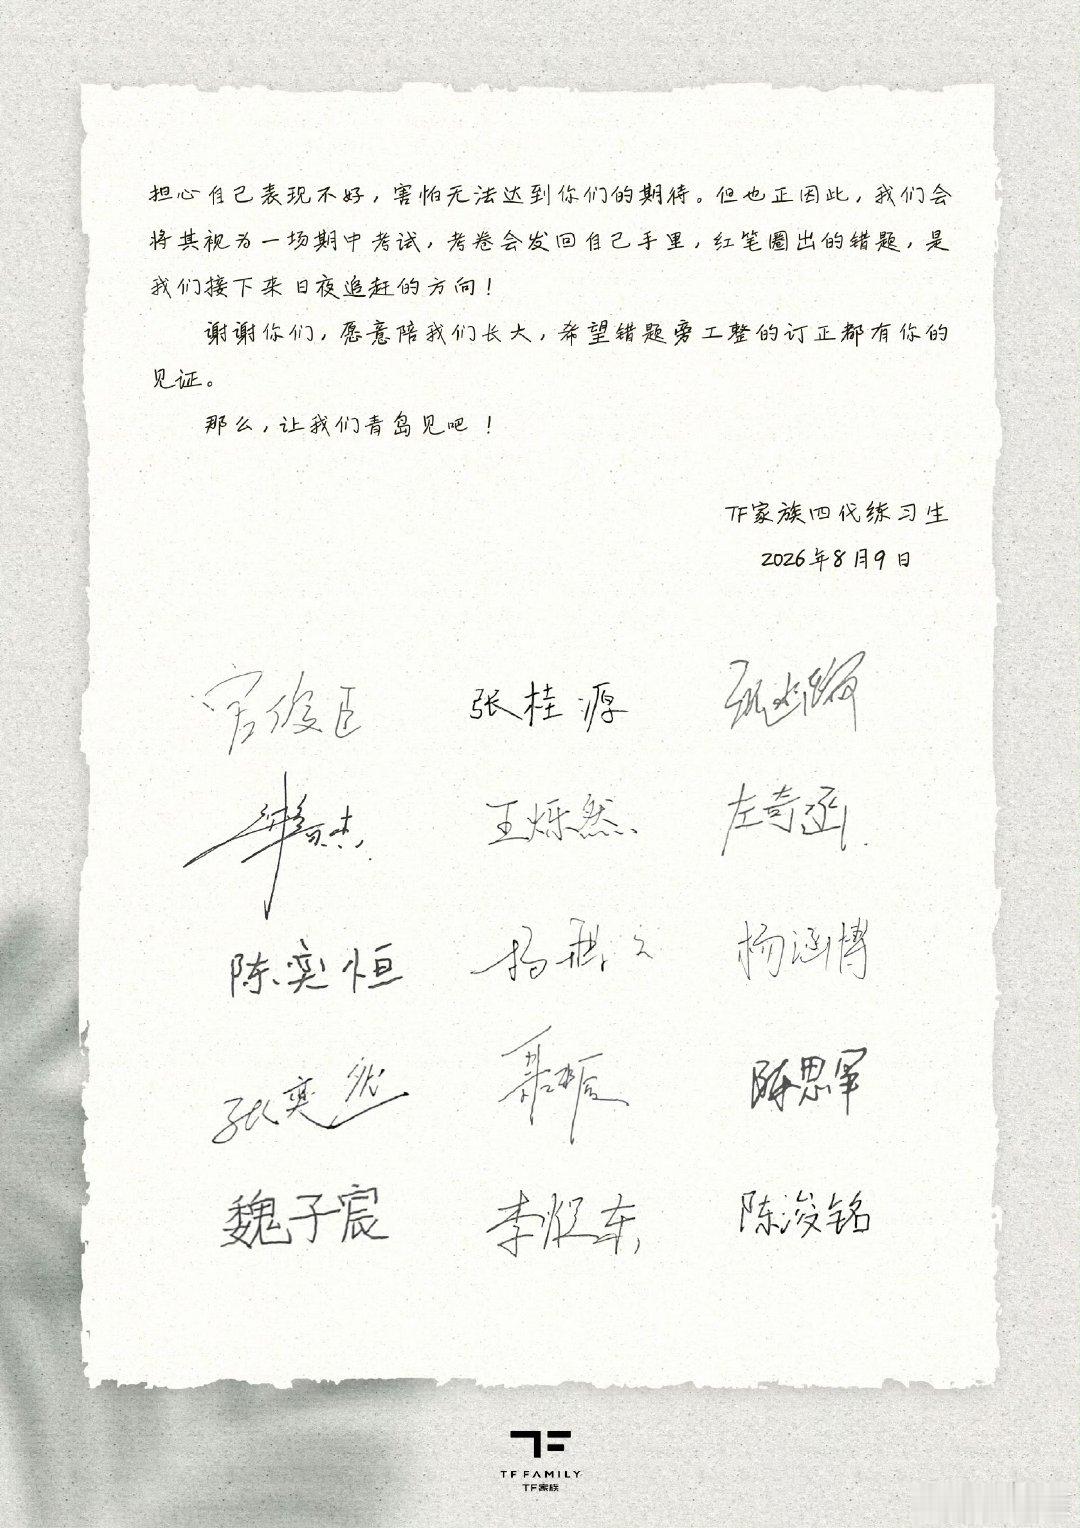 担心自己表现不好，害怕无法达到你们的期待。但也正因此，我们会
将其视为一场期中考试，考卷会发回自己手里，红笔圈出的错题，是
我们接下来日夜追赶的方向！
谢谢你们，愿意陪我们长大，希望错题旁工整的订正都有你的
见证。
那么，让我们青岛见吧！
TF家族四代练习生
2026年8月9日
官俊臣 张桂源
王烁然 左奇函
陈奕恒 杨涵博
张奕然 陈思罕
魏子宸 李煜东 陈浚铭
TF FAMILY
TF家族